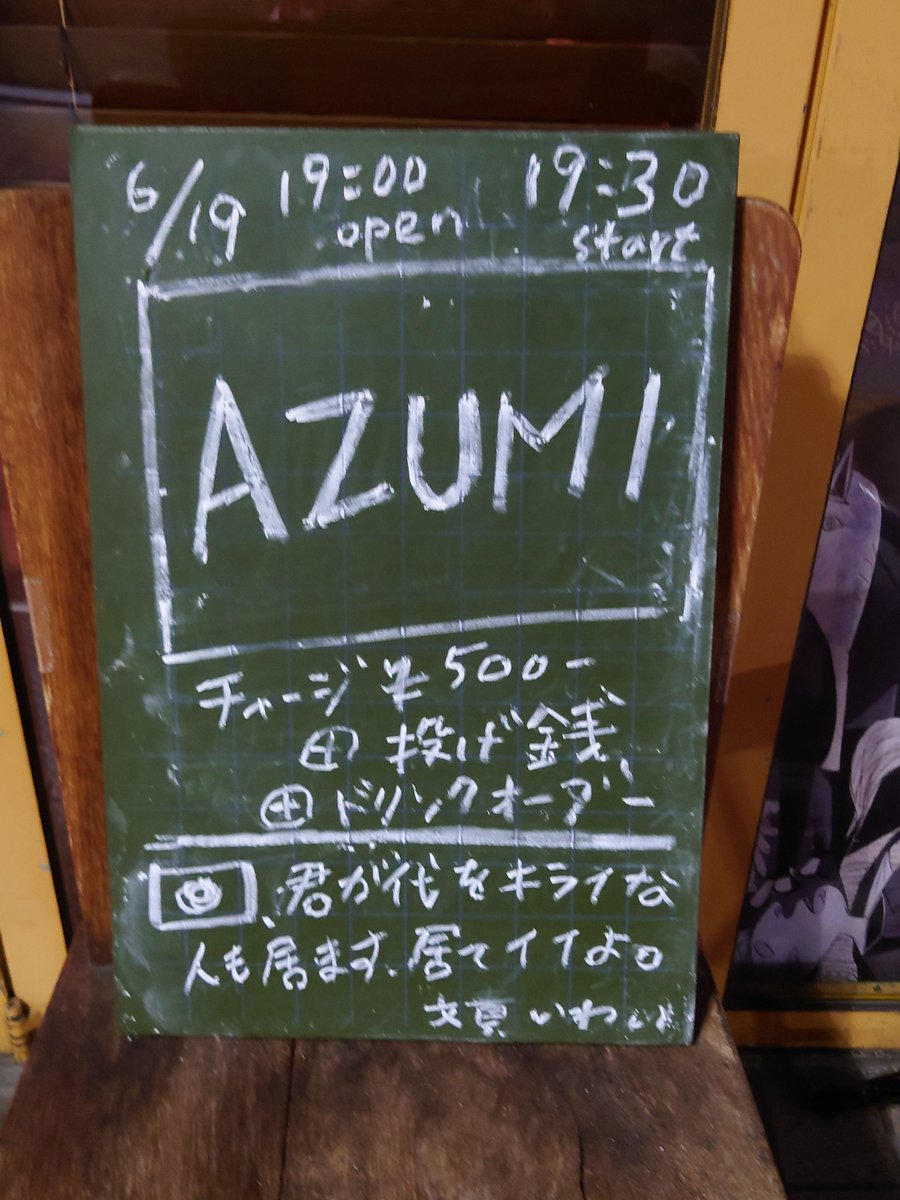 6/19 19:00 open 19:30 start
AZUMI
チャージ ¥500-
⊕ 投げ銭、
⊕ ドリンクオーダー
君が代をキライな
人も居ます、居てイイよ。